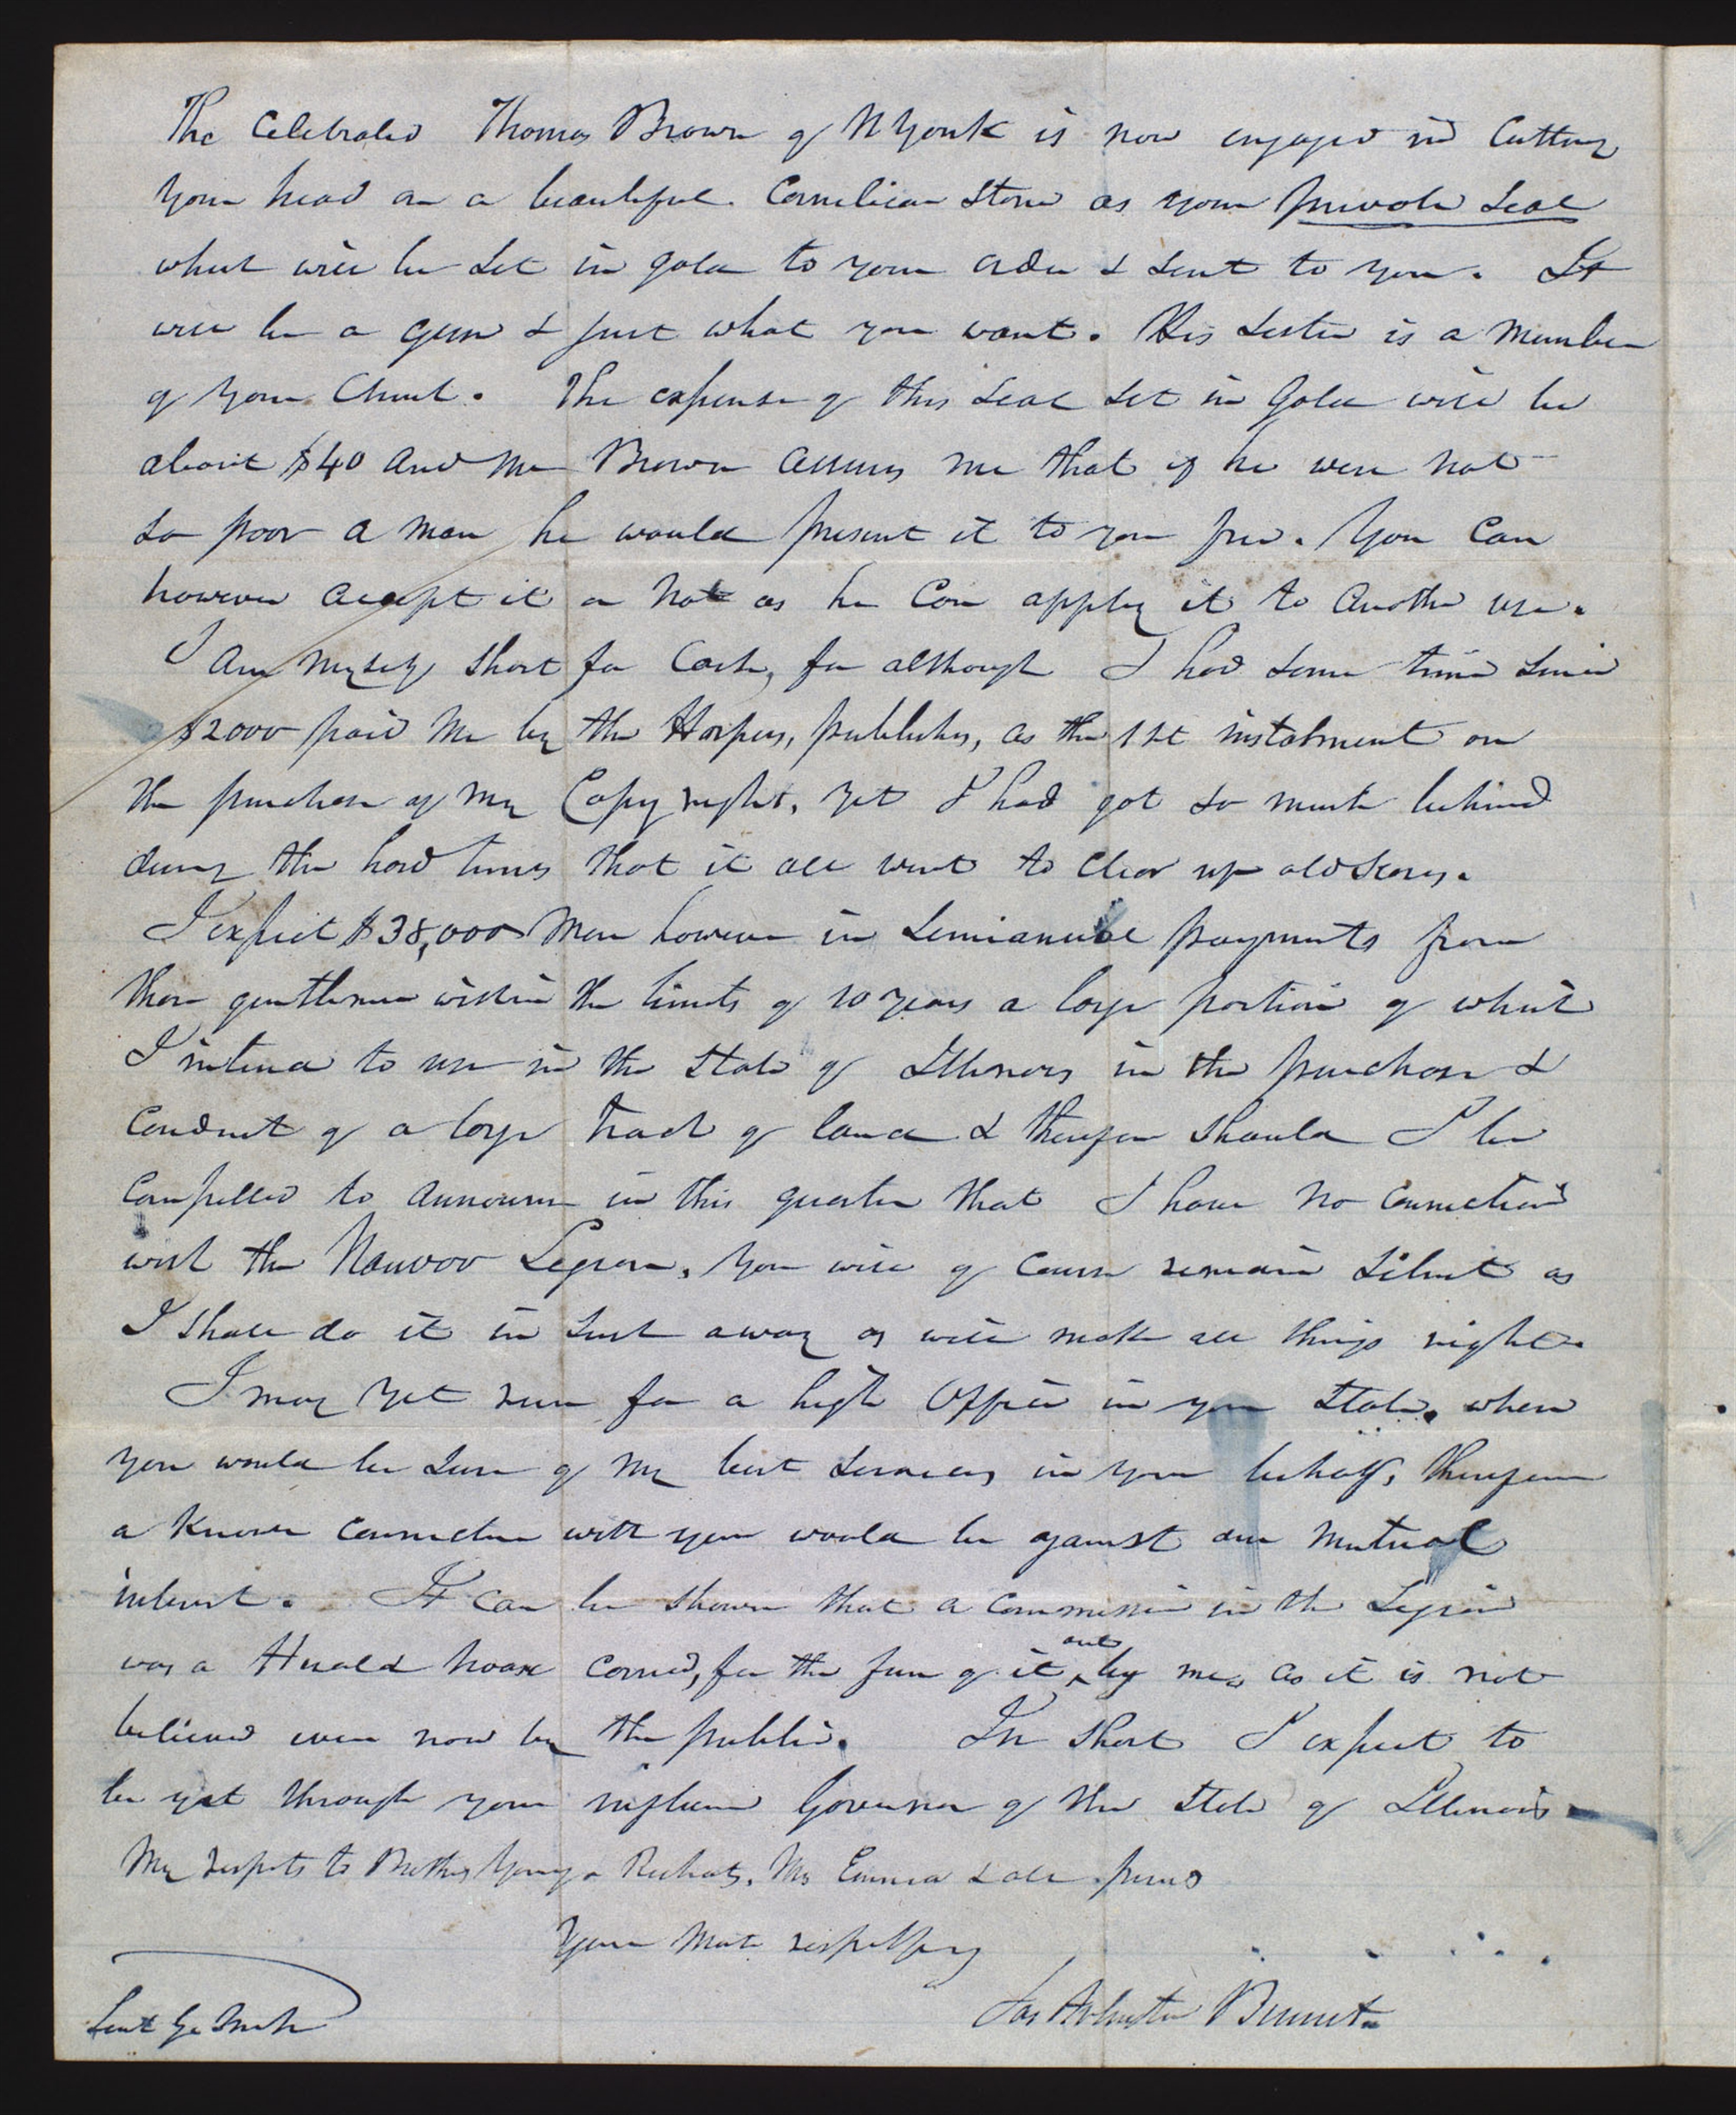 The Celebrated Thomas Brown of N York is now engaged in Cutting
your head on a beautiful Cornelian Stone as your private Seal
which will be Set in gold to your order & sent to you. It
will be a gem & just what you want. His Sister is a Member
of your Church. The expense of this Seal Set in Gold will be
about $40 and Mr Brown assures me that if he were not
so poor a man he would present it to you free. You Can
however accept it or not as he Can apply it to another use.
I am myself Short for Cash, for although I had some time since
$2000 paid me by the Harpers, publishers, as the 1st instalment on
the purchase of my Copy right, yet I had got so much behind
during the hard times that it all went to Clear up old Scores.
I expect $38,000 more however in Semianual payments from
those gentlemen within the limits of 10 years a large portion of which
I intend to use in the State of Illinois in the purchase &
Conduct of a large tract of land & therefore should I be
Compelled to announce in this quarter that I have no Connection
with the Nauvoo Legion, you will of Course remain Silent as
I shall do it in such away as will make all things right.
I may yet run for a high Office in your State, when
you would be sure of my best Services in your behalf, therefore
a Known Connection with you would be against our Mutual
interest. It can be shown that a Commission in the Legion
was a Herald hoax Coined, for the fun of it by me,
out
as it is not
believed even now by the public. In short I expect to
be yet through your influence Governor of the State of Illinois
My respects to Brothers Young, Richards, Mrs Emma & all friends
Yours Most respectfully
Jas Arlington Bennet
Lieut Ge Smith